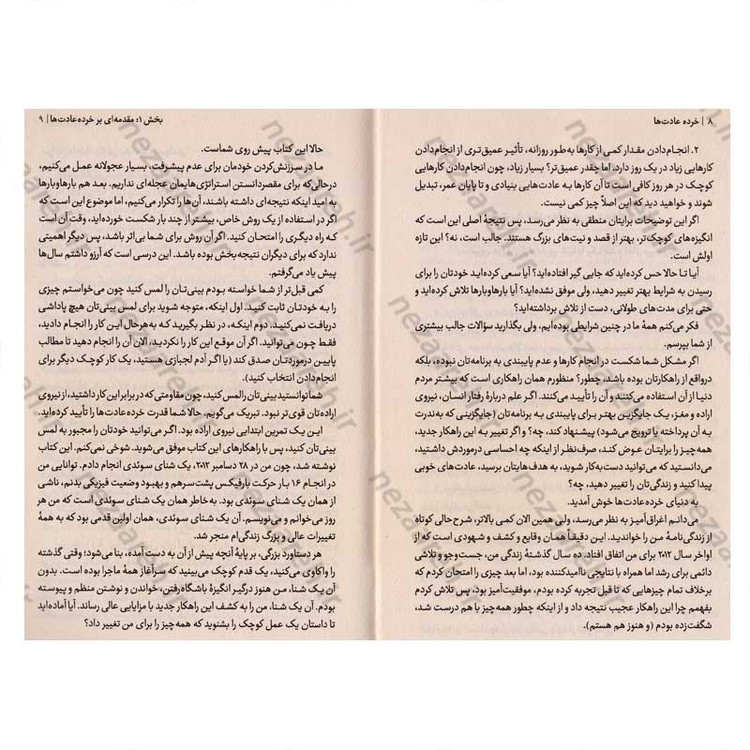 ۸ | خرده عادت‌ها
۲. انجام‌دادن مقدار کمی از کارها به‌طور روزانه، تأثیر عمیق‌تری از انجام‌دادن
کارهایی زیاد در یک روز دارد. اما چقدر عمیق‌تر؟ بسیار زیاد، چون انجام‌دادن کارهایی
کوچک در هر روز کافی است تا آن کارها به عادت‌هایی بنیادی و تا پایان عمر، تبدیل
شوند و خواهید دید که این اصلاً چیز کمی نیست.
اگر این توضیحات برایتان منطقی به نظر می‌رسد، پس نتیجهٔ اصلی این است که
انگیزه‌های کوچک‌تر، بهتر از قصد و نیت‌های بزرگ هستند. جالب است، نه؟ این تازه
اولش است.
آیا تا حالا حس کرده‌اید که جایی گیر افتاده‌اید؟ آیا سعی کرده‌اید خودتان را برای
رسیدن به شرایط بهتر تغییر دهید، ولی موفق نشده‌اید؟ آیا بارهاوبارها تلاش کرده‌اید و
حتی برای مدت‌های طولانی، دست از تلاش برداشته‌اید؟
فکر می‌کنم همهٔ ما در چنین شرایطی بوده‌ایم، ولی بگذارید سؤالات جالب بیشتری
از شما بپرسم.
اگر مشکل شما شکست در انجام کارها و عدم پایبندی به برنامه‌تان نبوده، بلکه
درواقع از راهکارتان بوده باشد، چطور؟ منظورم همان راهکاری است که بیشتر مردم
دنیا از آن استفاده می‌کنند و آن را تأیید می‌کنند. اگر علم دربارهٔ رفتار انسان، نیروی
اراده و مغز، یک جایگزین بهتر برای پایبندی به برنامه‌تان (جایگزینی که به‌ندرت
به آن پرداخته یا ترویج می‌شود) پیشنهاد کند، چه؟ و اگر تغییر به این راهکار جدید،
همه‌چیز را برایتان عوض کند، صرف‌نظر از اینکه چه احساسی درموردش داشتید،
می‌دانستید که می‌توانید دست‌به‌کار شوید، به هدف‌هایتان برسید، عادت‌های خوبی
پیدا کنید و زندگی‌تان را تغییر دهید، چه؟
به دنیای خرده‌عادت‌ها خوش آمدید.
می‌دانم اغراق‌آمیز به نظر می‌رسد، ولی همین الان کمی بالاتر، شرح‌حالی کوتاه
از زندگی‌نامهٔ من را خواندید. این دقیقاً همان وقایع و کشف و شهودی است که از
اواخر سال ۲۰۱۲ برای من اتفاق افتاد. ده سال گذشتهٔ زندگی من، جست‌وجو و تلاشی
دائمی برای رشد اما همراه با نتایجی ناامیدکننده بود، اما بعد چیزی را امتحان کردم که
برخلاف تمام چیزهایی که تا قبل تجربه کرده بودم، موفقیت‌آمیز بود. پس تلاش کردم
بفهمم چرا این راهکار عجیب نتیجه داد و از اینکه چطور همه‌چیز با هم درست شد،
شگفت‌زده بودم (و هنوز هم هستم).
بخش ۱: مقدمه‌ای بر خرده‌عادت‌ها | ۹
حالا این کتاب پیش روی شماست.
ما در سرزنش‌کردن خودمان برای عدم پیشرفت، بسیار عجولانه عمل می‌کنیم،
درحالی‌که برای مقصردانستن استراتژی‌هایمان عجله‌ای نداریم. بعد هم بارهاوبارها
به امید اینکه نتیجه‌ای داشته باشند، آن‌ها را تکرار می‌کنیم، اما موضوع این است که
اگر در استفاده از یک روش خاص، بیشتر از چند بار شکست خورده‌اید، وقت آن است
که راه دیگری را امتحان کنید. اگر آن روش برای شما بی‌اثر باشد، پس دیگر اهمیتی
ندارد که برای دیگران نتیجه‌بخش بوده باشد. این درسی است که آرزو داشتم سال‌ها
پیش یاد می‌گرفتم.
کمی قبل‌تر از شما خواسته بودم بینی‌تان را لمس کنید چون می‌خواستم چیزی
را به خودتان ثابت کنید. اول اینکه، متوجه شوید برای لمس بینی‌تان هیچ پاداشی
دریافت نمی‌کنید. دوم اینکه، در نظر بگیرید که به‌هرحال این کار را انجام دادید،
فقط چون می‌توانید. اگر آن موقع این کار را نکردید، الان آن را انجام دهید تا مطالب
پایین درموردتان صدق کند (یا اگر آدم لجبازی هستید، یک کار کوچک دیگر برای
انجام‌دادن انتخاب کنید).
شما توانستید بینی‌تان را لمس کنید، چون مقاومتی که در برابر این کار داشتید، از نیروی
اراده‌تان قوی‌تر نبود. تبریک می‌گویم، حالا شما قدرت خرده‌عادت‌ها را تأیید کرده‌اید.
این یک تمرین ابتدایی نیروی اراده بود. اگر می‌توانید خودتان را مجبور به لمس
بینی‌تان کنید، پس با راهکارهای این کتاب موفق می‌شوید. شوخی نمی‌کنم. این کتاب
نوشته شد، چون من در ۲۸ دسامبر ۲۰۱۲، یک شنای سوئدی انجام دادم. توانایی من
در انجام ۱۶ بار حرکت بارفیکس پشت‌سرهم و بهبود وضعیت فیزیکی بدنم، ناشی
از همان یک شنای سوئدی بود. به خاطر همان یک شنای سوئدی است که من هر
روز می‌خوانم و می‌نویسم. آن یک شنای سوئدی، همان اولین قدمی بود که به همهٔ
تغییرات عالی و بزرگ زندگی‌ام منجر شد.
هر دستاورد بزرگی، بر پایهٔ آنچه پیش از آن به دست آمده، بنا می‌شود؛ وقتی گذشته
را واکاوی می‌کنید، یک قدم کوچک می‌بینید که سرآغاز همهٔ ماجرا بوده است. بدون
آن یک شنا، من هنوز درگیر انگیزهٔ باشگاه‌رفتن، خواندن و نوشتن منظم و پیوسته
بودم. آن یک شنا، من را به کشف این راهکار جدید با مزایایی عالی رساند. آیا آماده‌اید
تا داستان یک عمل کوچک را بشنوید که همه‌چیز را برای من تغییر داد؟
nezaareh.ir